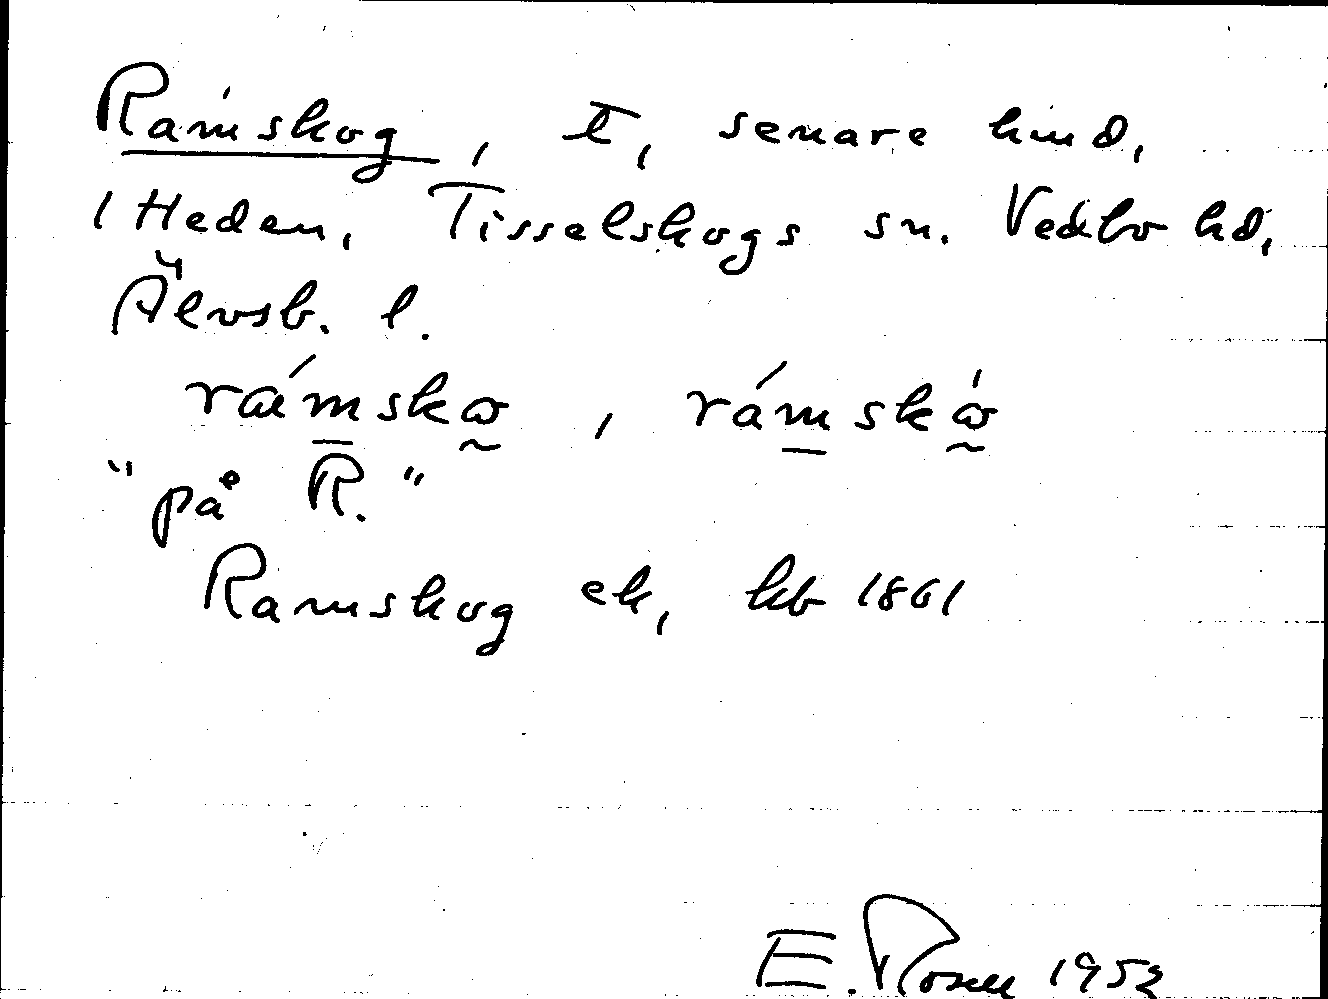 Ramskog, t, senare hmd,
1 Heden, Tisselskogs sn. Vedbo hd,
Älvsb. l.
rámskω̰, rámskώ̰
"på R."
Ramskog ek, hb 1861
E. Rosell 1952